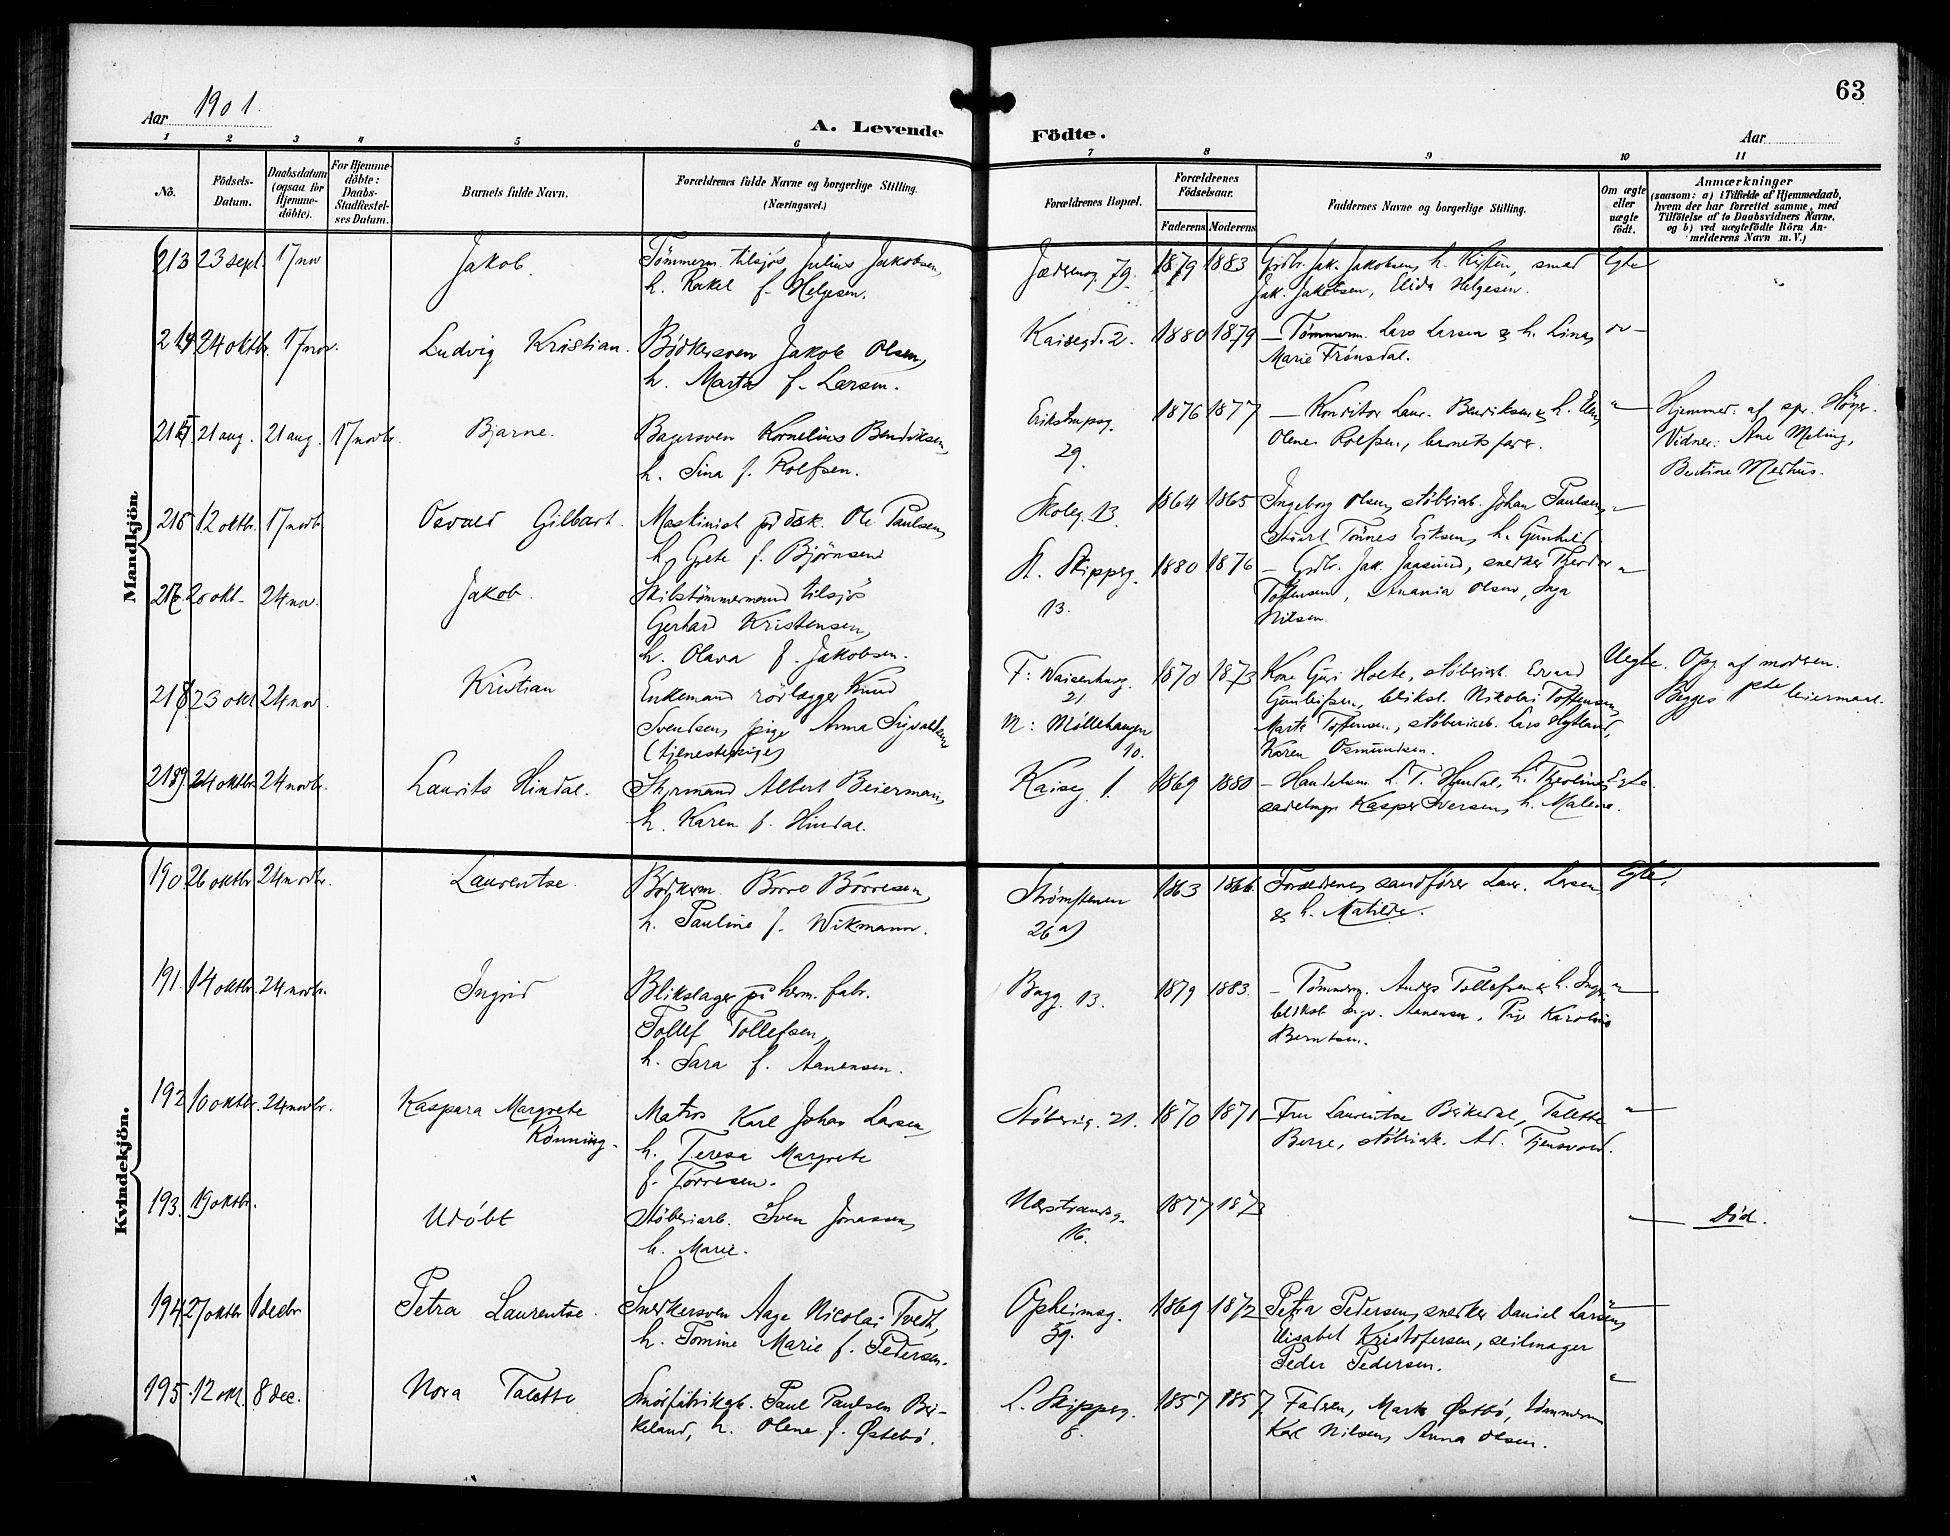 63
Aar 1901
A. Levende Födte.
Aar
1 2 3 4 5 6 7 8 9 10 11
No.
Födsels-
Datum.
Daabsdatum
(ogsaa for
Hjemme-
döbte).
For Hjemme-
döbte:
Daabs-
Stadfæstel-
ses Datum.
Barnets fulde Navn.
Forældrenes fulde Navne og borgerlige Stilling.
(Næringsvei.)
Forældrenes Bopæl.
Forældrenes
Födselsaar.
Faderens Moderens
Faddernes Navne og borgerlige Stilling.
Om ægte
eller
uægte
födt.
Anmærkninger
(saasom: a) i Tilfælde af Hjemmedaab,
hvem der har forrettet samme, med
Tilföielse af to Daabsvidners Navne.
og b) ved uægtefödte Börn An-
melderens Navn m. V.)
Mandkjön.
213 23 sept. 17 nov
Jakob.
Tømmerm. tilsjøs Julius Jakobsen,
h. Rakel f. Helgesen.
79. 1879 1883
Grdbr. Jak. Jakobsen, h. smed
Jak. Jakobsen, Elida Helgesen.
Egte
214 24 oktbr. 17 nov.
Ludvig Kristian.
Bødkersven Jakob Olsen,
h. Marta f. Larsen.
Kaisegd. 2. 1880 1879
— Tømmerm. Lars Larsen & h. Lina,
Marie Frønsdal.
21 aug. 21 aug. 17 novbr.
Bjarne.
Bagersven Kornelius Bendiksen,
h. Sina f. Rolfsen.
29. 1876 1877
— Konditor Laur. Bendiksen & h.
Olene Rolfsen, barnets far.
Hjemmed. af spr. Høyer.
Vidner: Ane Meling,
Bertine Medhus.
12 oktbr. 17 novb.
Osvald Gilbart.
Maskinist på dsk. Ole Paulsen,
h. Grete f. Bjørnsen
Skoleg. 13. 1864 1865
Ingeborg Olsen, støberiarb. Johan Paulsen,
Tønnes Eriksen, h. Gunhild.
20 okt. 24 nov.
Jakob.
Skibstømmermand tilsjøs
Gerhard Kristensen,
h. Olava f. Jakobsen.
St. Skipperg.
13.
1880 1876
— Grdbr. Jak. Jaasund, snedker Theodor
Toftensen, Anania Olsen, Inga
Nilsen.
23 okt 24 nov.
Kristian
Enkemand rørlægger Knud
Svendsen, pige Anna Sigvaldsen
(tjenestepige)
F: Waisenhusg.
21
M: Møllehaugen
10.
1870 1873
Kone Guri Holte, støberiarb. Edvard
Gunleifsen, bliksl. Nikolai Toftensen,
Marta Toftensen, støberiarb. Lars Høyland,
Karen Osmundsen.
Uegte.
Opg. af modren.
Begges leiermaal.
24 oktbr. 24 novbr.
Laurits Hindal.
Styrmand Albert Beiermann,
h. Karen f. Hindal.
Kaiseg. 1. 1869 1880
— Handelsm. L. T. Hindal, h. Theoline,
sadelmgr. Kasper Iversen, h. Malene.
Egte.
Kvindekjön.
190. 26 oktbr 24 novbr.
Laurentse.
Bødkerm. Børre Børresen,
h. Pauline f. Wikmann.
Strømstenen
26 a)
1863 1866.
Forældrene, sandfører Laur. Larsen
& h. Matilde.
Egte.
191. 14 oktbr. 24 novbr.
Ingrid
Blikslager på herm. fabr.
Tollef Tollefsen,
h. Sara f. Aanensen.
Bagg. 13. 1879 1883.
— Tømmerm. Tollefsen & h.
bliksl. Ingv. Aanensen, Pige Karoline
Berntsen.
192 10 oktbr. 24 novbr.
Kaspara Margrete
Rønning.
Matros Karl Johan Larsen,
h. Teresa Margrete
f. Torresen.
Støberig. 21. 1870 1871
— Fru Laurentse Birkedal, Talette
Berge, støberiarb. Ad. Tjensvold.
193. 19 oktbr.
Udøbt
Støberiarb. Sven Jonassen,
h. Marie.
Nerstrandsg.
16.
1877 1873
Død.
194. 27 oktbr 1 decbr
Petra Laurentse.
Snedkersven Aage Nicolai Tvedt,
h. Tomine Marie f. Pedersen.
Opheimsg.
59.
1869 1872
Petra Pedersen, snedker Daniel Larsen,
Elisabet Kristofersen, seilmager
Peder Pedersen.
195. 12 okt. 8 dec.
Nora Talette
Smørfabrikarb. Paul Paulsen Ber-
keland, h. Olene f. Østebø.
L. Skipperg.
8.
1857 1857
Fadren, Marta Østbø, tømmerm.
Karl Nilsen, Anna Olsen.